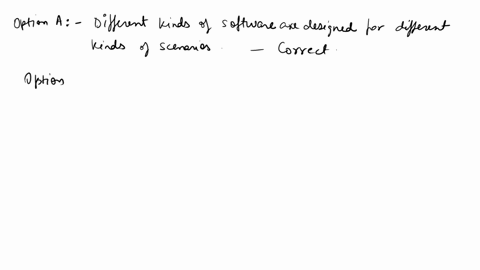 Option A:- Different kinds of software are designed for different
kinds of scenarios. - Correct.
Option